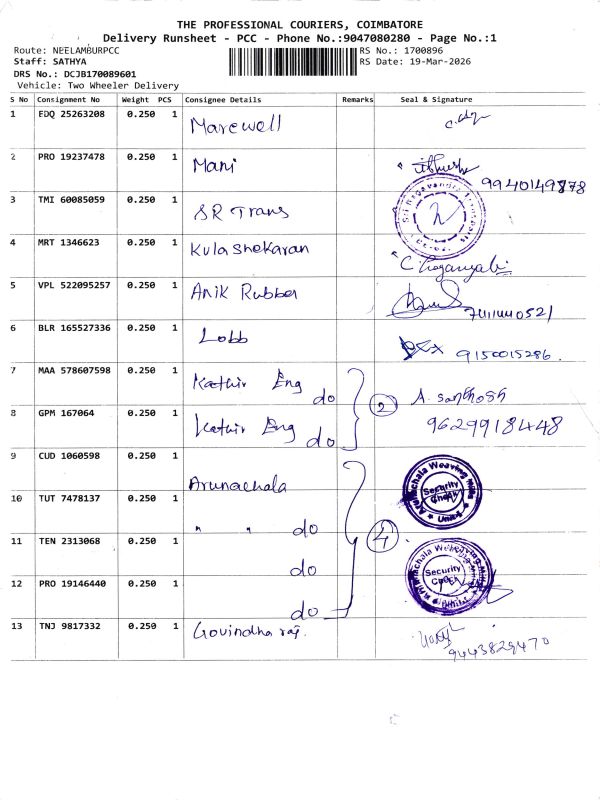 THE PROFESSIONAL COURIERS, COIMBATORE
Delivery Runsheet - PCC - Phone No.:9047080280 - Page No.:1
Route: NEELAMBURPCC RS No.: 1700896
Staff: SATHYA RS Date: 19-Mar-2026
DRS No.: DCJB170089601
Vehicle: Two Wheeler Delivery
S No Consignment No Weight PCS Consignee Details Remarks Seal & Signature
1 EDQ 25263208 0.250 1 Marewell
2 PRO 19237478 0.250 1 Mani 9940149878
3 TMI 60085059 0.250 1 SR Trans
4 MRT 1346623 0.250 1 Kulashekaran
5 VPL 522095257 0.250 1 Anik Rubber
6 BLR 165527336 0.250 1 Lobb 9150015286.
7 MAA 578607598 0.250 1 Kathir Eng do 2 A. Santhosh
8 GPM 167064 0.250 1 Kathir Eng do 9629918448
9 CUD 1060598 0.250 1 Arunachala
Arunachala Weaving Mills
Security
10 TUT 7478137 0.250 1 " " do 4
11 TEN 2313068 0.250 1 do
Security
12 PRO 19146440 0.250 1 do
13 TNJ 9817332 0.250 1 Govindharaj. 9443829470